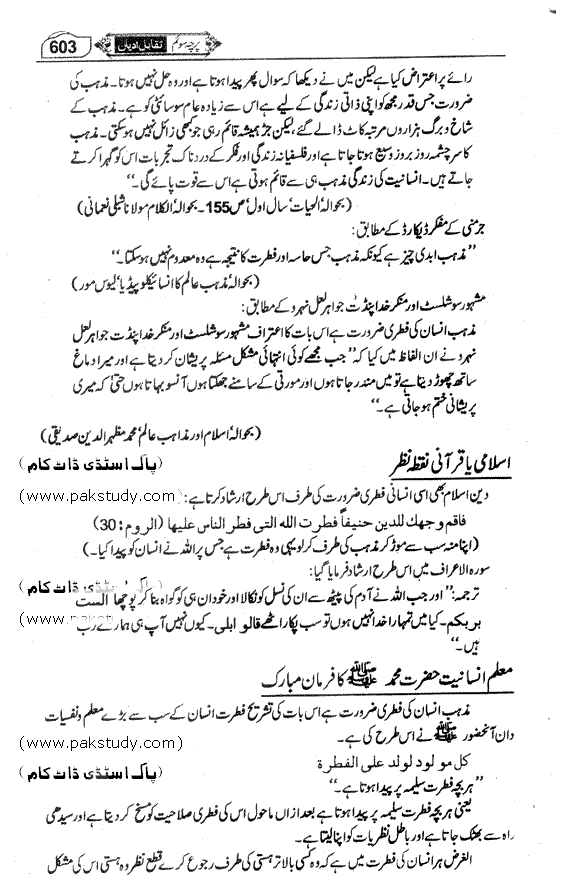 پرچہ سوئم تقابل ادیان 603
رائے پر اعتراض کیا ہے لیکن میں نے دیکھا کہ سوال پھر پیدا ہوتا ہے اور وہ حل نہیں ہوتا۔ مذہب کی
ضرورت جس قدر مجھ کو اپنی ذاتی زندگی کے لیے ہے اس سے زیادہ عام سوسائٹی کو ہے۔ مذہب کے
شاخ و برگ ہزاروں مرتبہ کاٹ ڈالے گئے لیکن جڑ ہمیشہ قائم رہی جو کبھی زائل نہیں ہو سکتی۔ مذہب
کا سرچشمہ روز بروز وسیع ہوتا جاتا ہے اور فلسفیانہ زندگی اور فکر کے دردناک تجربات اس کو گہرا کرتے
جاتے ہیں۔ انسانیت کی زندگی مذہب ہی سے قائم ہوتی ہے اس سے قوت پائے گی۔‘‘
(بحوالہ ’الحیات‘ سال اول‘ ص155۔ بحوالہ الکلام مولانا شبلی نعمانی)
جرمنی کے مفکر ڈیکارڈ کے مطابق:
’’مذہب ابدی چیز ہے کیونکہ مذہب جس حاسہ اور فطرت کا نتیجہ ہے وہ معدوم نہیں ہو سکتا۔‘‘
(بحوالہ ’مذہب عالم کا انسائیکلوپیڈیا‘ لیوس مور)
مشہور سوشلسٹ اور منکر خدا پنڈت جواہر لعل نہرو کے مطابق:
مذہب انسان کی فطری ضرورت ہے اس بات کا اعتراف مشہور سوشلسٹ اور منکر خدا پنڈت جواہر لعل
نہرو نے ان الفاظ میں کیا کہ ’’جب مجھے کوئی انتہائی مشکل مسئلہ پریشان کر دیتا ہے اور میرا دماغ
ساتھ چھوڑ دیتا ہے تو میں مندر جاتا ہوں اور مورتی کے سامنے جھکتا ہوں آنسو بہاتا ہوں حتیٰ کہ میری
پریشانی ختم ہو جاتی ہے۔‘‘
(بحوالہ ’اسلام اور مذاہب عالم‘ محمد مظہر الدین صدیقی)
اسلامی یا قرآنی نقطہ نظر (پاک اسٹڈی ڈاٹ کام)
دین اسلام بھی اسی انسانی فطری ضرورت کی طرف اس طرح ارشاد کرتا ہے: (www.pakstudy.com)
فاقم وجهك للدين حنيفاً فطرت الله التى فطر الناس عليها (الروم: 30)
(اپنا منہ سب سے موڑ کر مذہب کی طرف کر لو یہی وہ فطرت ہے جس پر اللہ نے انسان کو پیدا کیا۔)
سورہ الاعراف میں اس طرح ارشاد فرمایا گیا: (پاک اسٹڈی ڈاٹ کام)
ترجمہ: ’’اور جب اللہ نے آدم کی پیٹھ سے ان کی نسل کو نکالا اور خود ان ہی کو گواہ بنا کر پوچھا الست
بربکم۔ کیا میں تمہارا خدا نہیں ہوں تو سب پکار اٹھے قالو ابلی۔ کیوں نہیں آپ ہی ہمارے رب (www.pak
ہیں۔‘‘
معلم انسانیت حضرت محمد ﷺ کا فرمان مبارک
مذہب انسان کی فطری ضرورت ہے اس بات کی تشریح فطرت انسان کے سب سے بڑے معلم و نفسیات
دان آنحضور ﷺ نے اس طرح کی ہے۔ (www.pakstudy.com)
كل مو لود لولد على الفطرة
’’ہر بچہ فطرت سلیمہ پر پیدا ہوتا ہے۔‘‘ (پاک اسٹڈی ڈاٹ کام)
یعنی ہر بچہ فطرت سلیمہ پر پیدا ہوتا ہے بعد ازاں ماحول اس کی فطری صلاحیت کو مسخ کر دیتا ہے اور سیدھی
راہ سے بھٹک جاتا ہے اور باطل نظریات کو اپنا لیتا ہے۔
الغرض ہر انسان کی فطرت میں ہے کہ وہ کسی بالاتر ہستی کی طرف رجوع کرے قطع نظر وہ ہستی اس کی مشکل